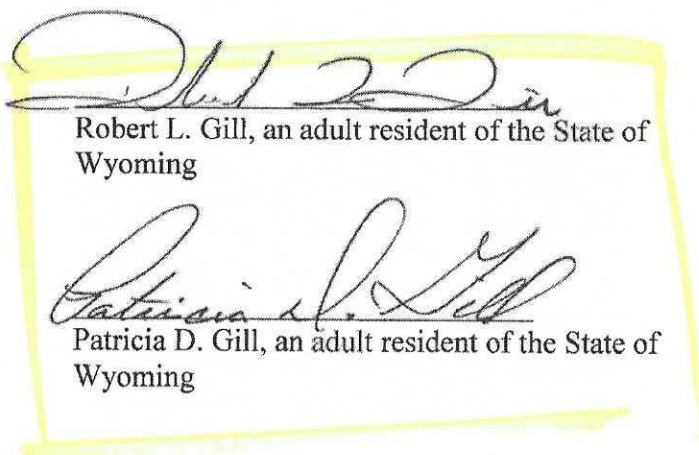 Robert L. Gill
Robert L. Gill, an adult resident of the State of
Wyoming
Patricia D. Gill
Patricia D. Gill, an adult resident of the State of
Wyoming